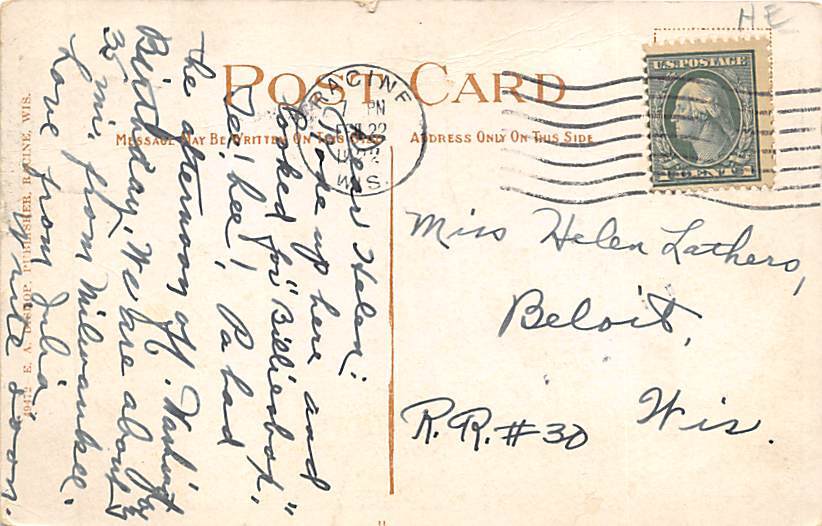 HE
POST CARD
MESSAGE MAY BE WRITTEN ON THIS SIDE
ADDRESS ONLY ON THIS SIDE
RACINE
7 PM
22
WIS.
U.S. POSTAGE
1 CENT 1
Dear Helen:
Rode up here and
looked for "Billiesbop,"
Te! hee! Pa had
the afternoon off. Washingt
Birthday. We are about
35 mi. from Milwaukee.
Love from Julia
Write soon.
Miss Helen Lathers,
Beloit,
Wis.
R.R. #30
49472 - E. A. BISHOP, PUBLISHER, RACINE, WIS.